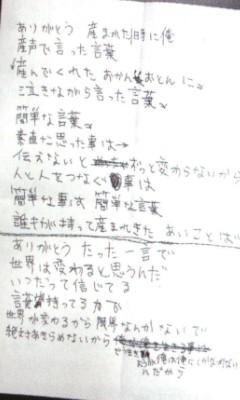 ありがとう 産まれた時に俺
産声で言った言葉
産んでくれた おかんとおとんに
泣きながら言った言葉
簡単な言葉
素直に思った事は
伝えないと ずっと変わらないから
人と人をつなぐ事は
簡単な事で 簡単な言葉
誰もが持って産まれてきた あいことば
ありがとう たった一言で
世界は変わると思うんだ
いつだって信じてる
言葉が持ってる力で
世界が変わるから 簡単なんかないで
絶対あきらめないから
んだから